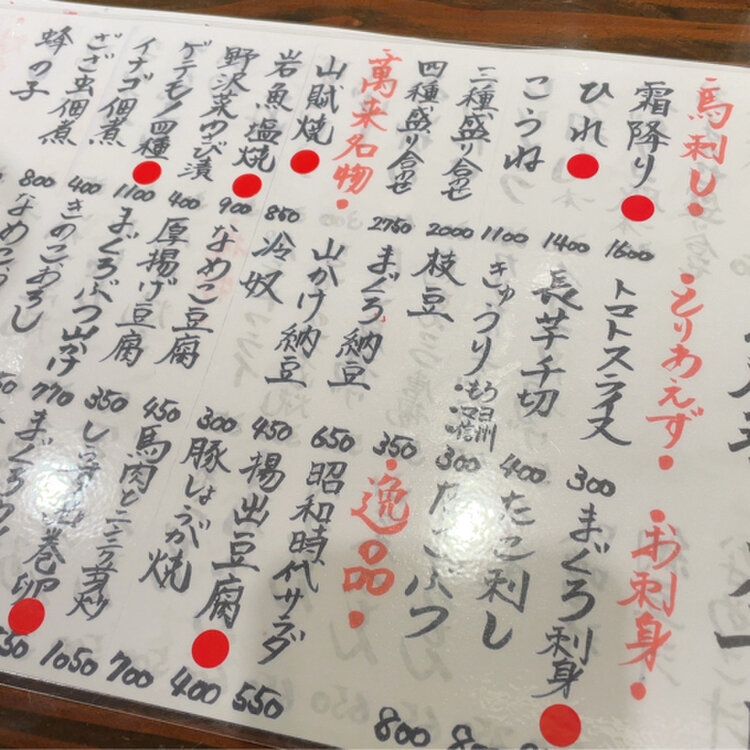 ・馬刺し・
霜降り 1600
ひれ 1400
こうね 1100
三種盛り合せ 2000
四種盛り合せ 2750
・萬来名物・
山賊焼 850
岩魚塩焼 900
野沢菜わさび漬 400
ゲテモノ四種 1100
イナゴ佃煮 400
ざざ虫佃煮 800
蜂の子
・とりあえず・
トマトスライス 300
長芋千切 400
きゅうり ・もろ ・マヨ 300
枝豆 350
まぐろ納豆 650
山かけ納豆 450
冷奴 300
なめこ豆腐 450
厚揚げ豆腐 350
まぐろぶつ山かけ 770
きのこおろし
なめこおろし
・お刺身・
まぐろ刺身
たこ刺し
たこぶつ 800
・逸品・
昭和時代サラダ 550
揚出豆腐 400
豚しょうが焼 700
馬肉とニンニク芽炒 1050
巻卵